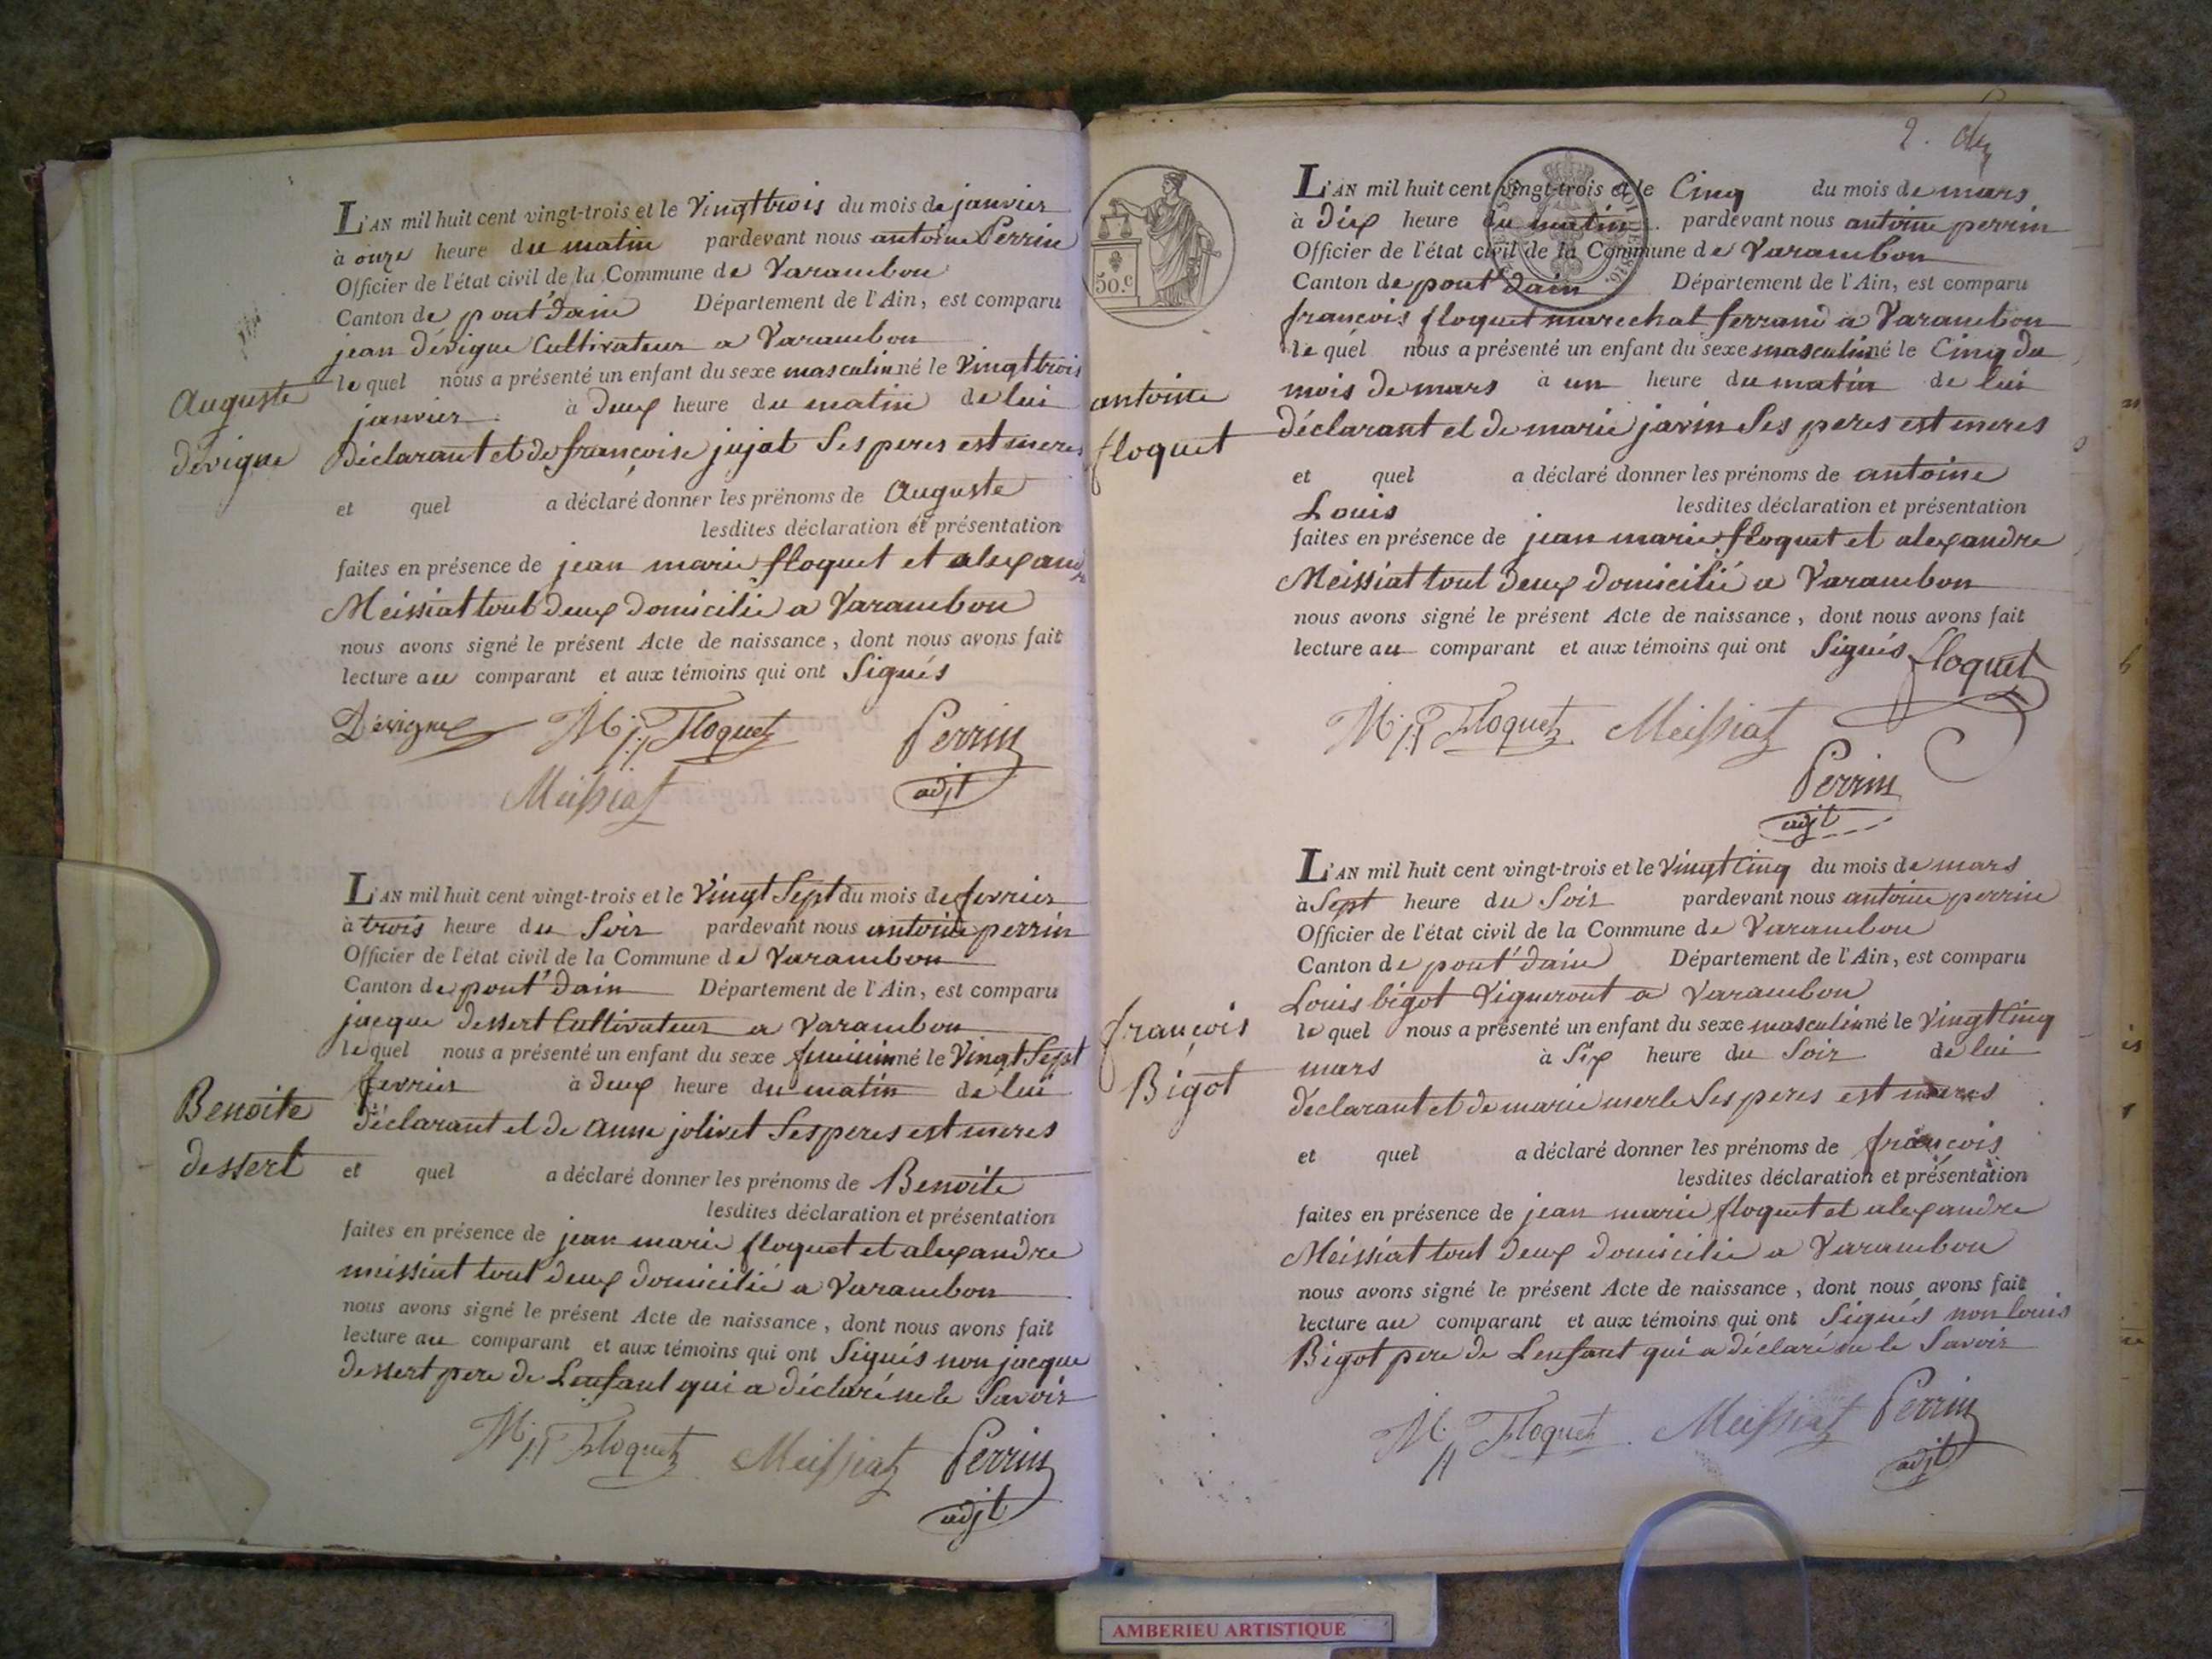 L'AN mil huit cent vingt-trois et le Vingt trois du mois de janvier
à onze heure du matin pardevant nous antoine Perrin
Officier de l'état civil de la Commune de Varambon
Canton de pont d'ain Département de l'Ain, est comparu
jean dévigne Cultivateur a Varambon
le quel nous a présenté un enfant du sexe masculin né le Vingt trois
janvier à deux heure du matin de lui
Auguste
dévigne
déclarant et de françoise jujat Ses peres est meres
et quel a déclaré donner les prénoms de Auguste
lesdites déclaration et présentation
faites en présence de jean marie floquet et alexandre
Meissiat tout deux domicilié a Varambon
nous avons signé le présent Acte de naissance, dont nous avons fait
lecture au comparant et aux témoins qui ont Signés
Dévigne M Floquet Perrin
Meissiat adjt
L'AN mil huit cent vingt-trois et le Vingt Sept du mois de fevrier
à trois heure du Soir pardevant nous antoine perrin
Officier de l'état civil de la Commune de Varambon
Canton de pont d'ain Département de l'Ain, est comparu
jacque dessert Cultivateur a Varambon
le quel nous a présenté un enfant du sexe feminin né le Vingt Sept
fevrier à deux heure du matin de lui
Benoite
dessert
déclarant et de anne jolivet Ses peres est meres
et quel a déclaré donner les prénoms de Benoite
lesdites déclaration et présentation
faites en présence de jean marie floquet et alexandre
meissiat tout deux domicilié a Varambon
nous avons signé le présent Acte de naissance, dont nous avons fait
lecture au comparant et aux témoins qui ont Signés non jacque
dessert pere de Lenfant qui a déclaré ne le Savoir
M Floquet Meissiat Perrin
adjt
2.
50.c
L'AN mil huit cent vingt-trois et le Cinq du mois de mars
à dix heure du matin pardevant nous antoine perrin
Officier de l'état civil de la Commune de Varambon
Canton de pont d'ain Département de l'Ain, est comparu
francois floquet marechal ferrand a Varambon
le quel nous a présenté un enfant du sexe masculin né le Cinq du
mois de mars à un heure du matin de lui
antoine
floquet
déclarant et de marie javin Ses peres est meres
et quel a déclaré donner les prénoms de antoine
Louis lesdites déclaration et présentation
faites en présence de jean marie floquet et alexandre
Meissiat tout deux domicilié a Varambon
nous avons signé le présent Acte de naissance, dont nous avons fait
lecture au comparant et aux témoins qui ont Signés floquet
M Floquet Meissiat
Perrin
adjt
L'AN mil huit cent vingt-trois et le Vingt Cinq du mois de mars
à Sept heure du Soir pardevant nous antoine perrin
Officier de l'état civil de la Commune de Varambon
Canton de pont d'ain Département de l'Ain, est comparu
Louis bigot Vigneront a Varambon
le quel nous a présenté un enfant du sexe masculin né le Vingt Cinq
mars à Six heure du Soir de lui
françois
Bigot
déclarant et de marie merle Ses peres est meres
et quel a déclaré donner les prénoms de françois
lesdites déclaration et présentation
faites en présence de jean marie floquet et alexandre
Meissiat tout deux domicilié a Varambon
nous avons signé le présent Acte de naissance, dont nous avons fait
lecture au comparant et aux témoins qui ont Signés non louis
Bigot pere de Lenfant qui a déclaré ne le Savoir
M Floquet Meissiat Perrin
adjt
AMBERIEU ARTISTIQUE